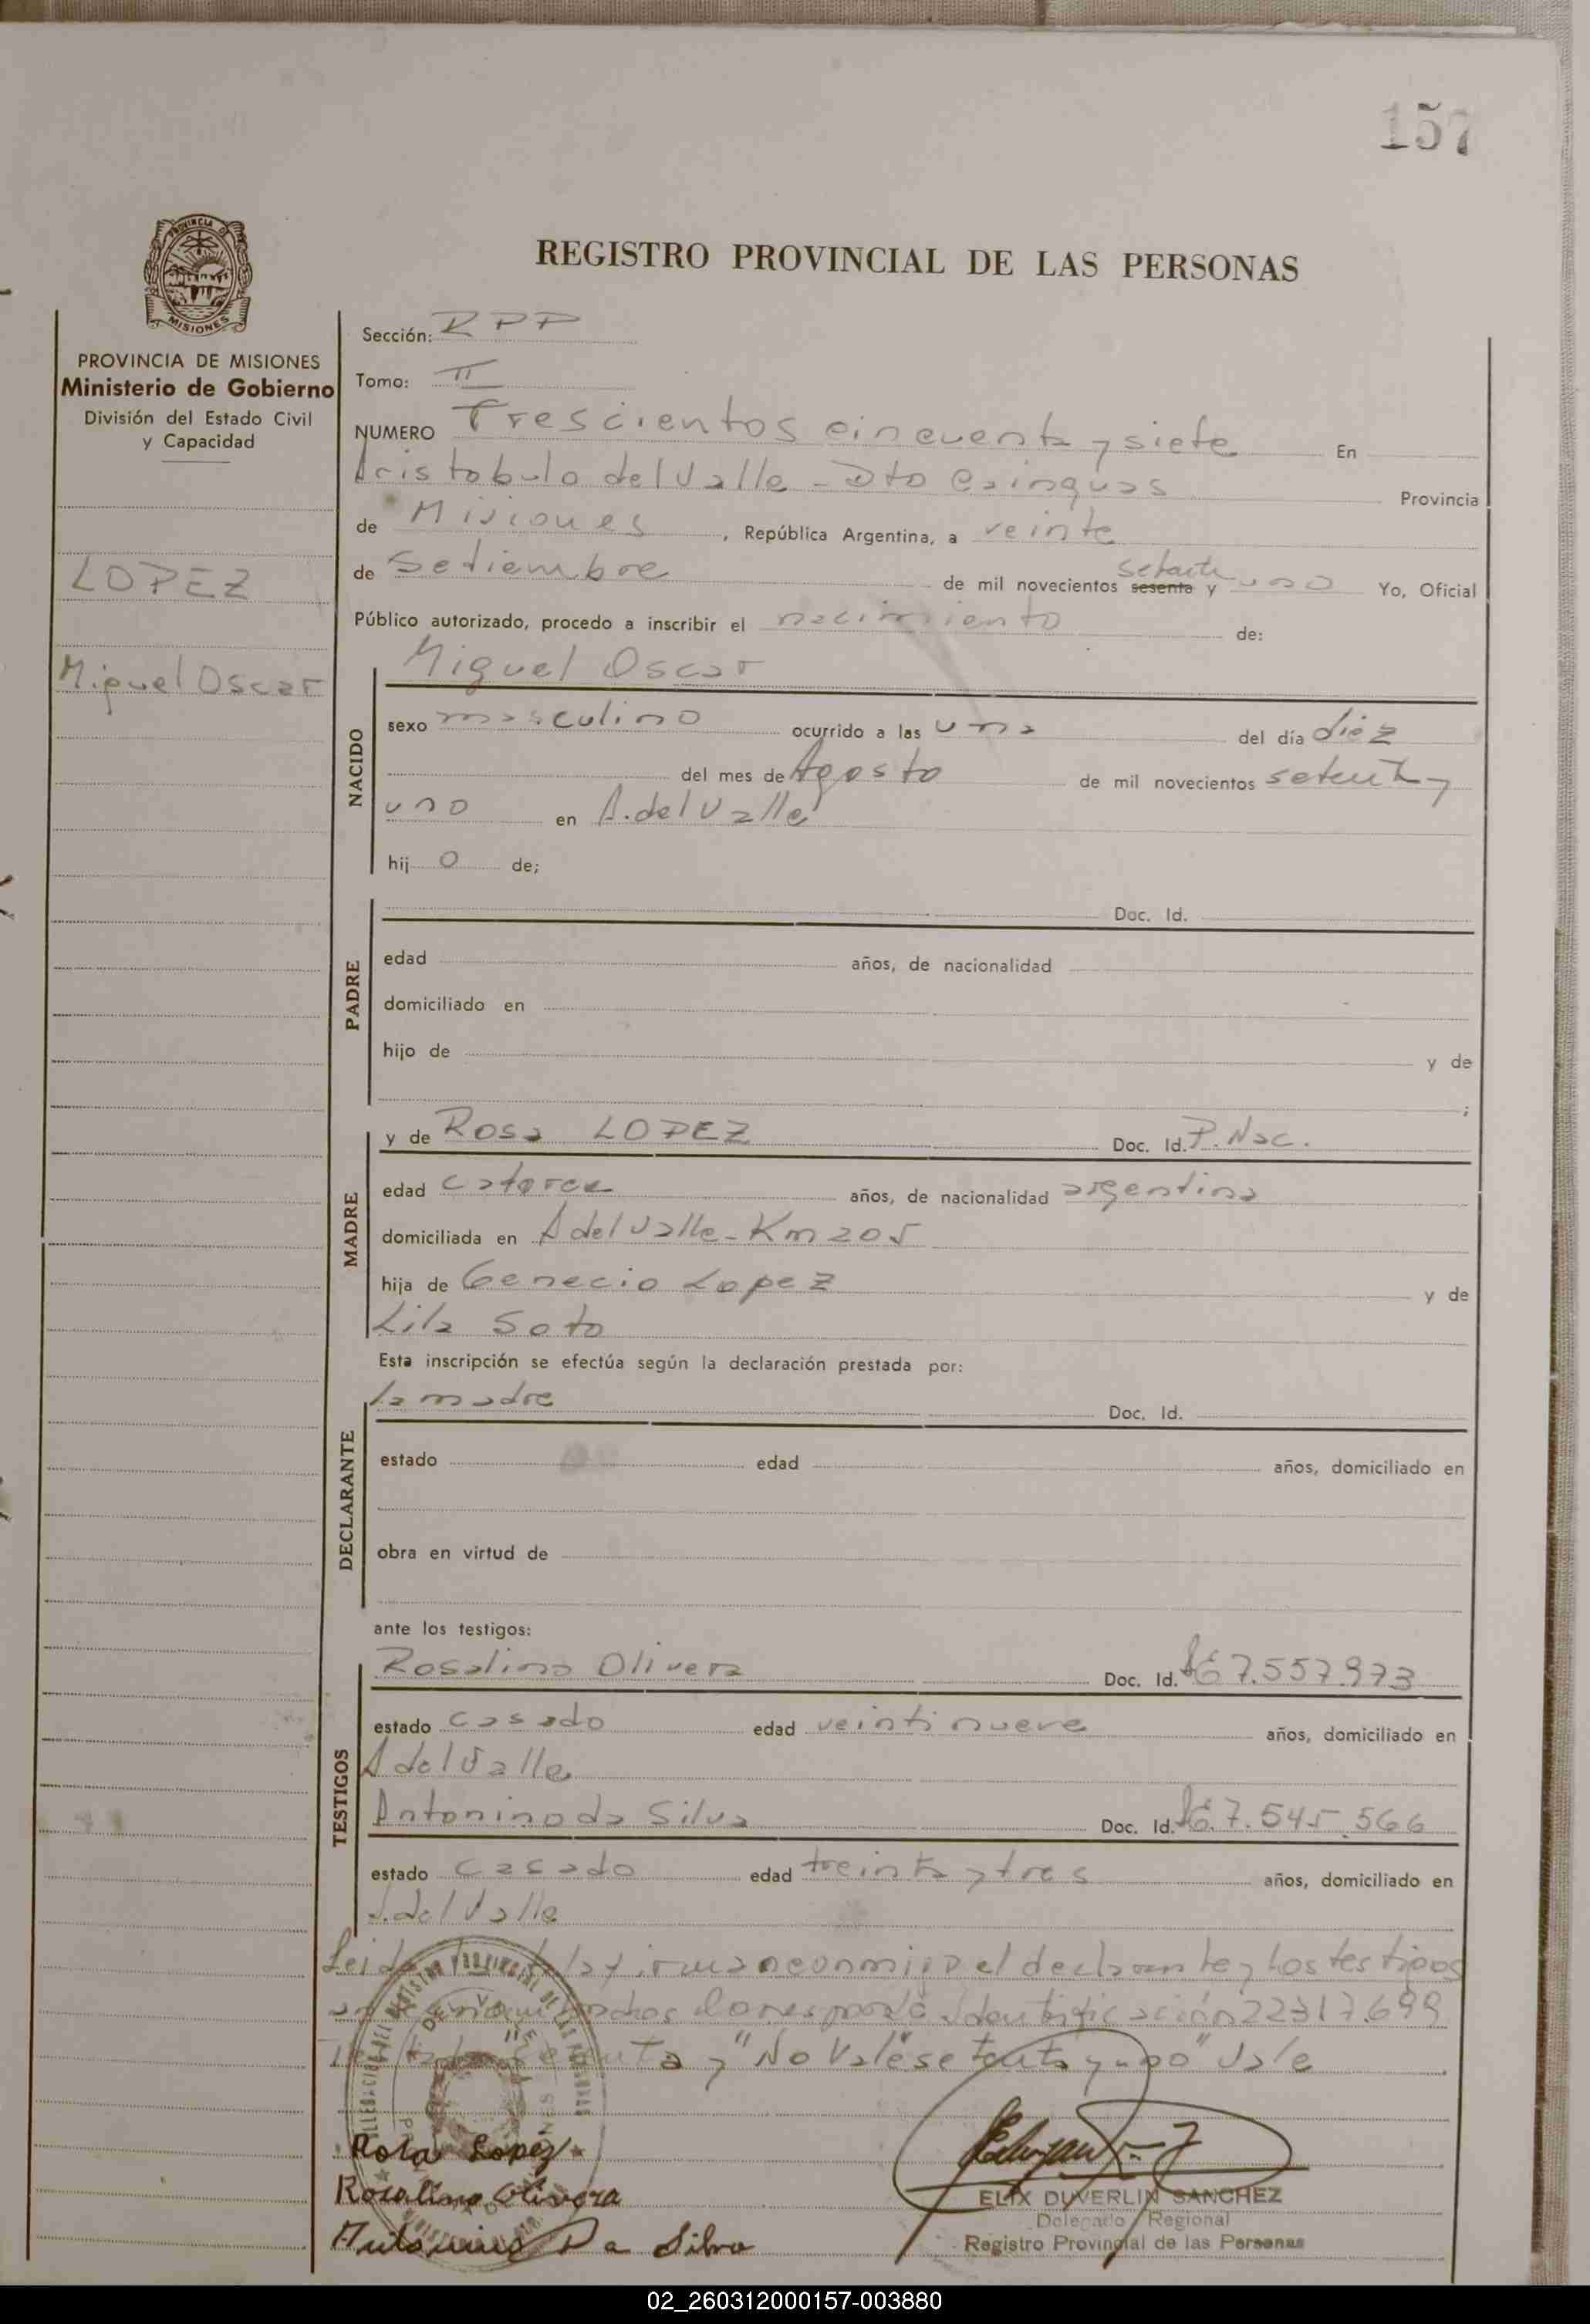 157
PROVINCIA DE
MISIONES
REGISTRO PROVINCIAL DE LAS PERSONAS
PROVINCIA DE MISIONES
Ministerio de Gobierno
División del Estado Civil
y Capacidad
LOPEZ
Miguel Oscar
Sección: RPP
Tomo: II
NUMERO Trescientos cincuenta y siete En
Aristobulo del Valle - Dto Cainguas Provincia
de Misiones, República Argentina, a veinte
de Setiembre de mil novecientos sesenta setenta y uno Yo, Oficial
Público autorizado, procedo a inscribir el nacimiento de:
NACIDO
Miguel Oscar
sexo masculino ocurrido a las una del día diez
del mes de Agosto de mil novecientos setenta y
uno en A. del Valle
hij o de;
PADRE
Doc. Id.
edad años, de nacionalidad
domiciliado en
hijo de y de
;
MADRE
y de Rosa LOPEZ Doc. Id. P. Nac.
edad catorce años, de nacionalidad argentina
domiciliada en A del Valle - Km 205
hija de Genecio Lopez y de
Lila Soto
Esta inscripción se efectúa según la declaración prestada por:
DECLARANTE
la madre Doc. Id.
estado edad años, domiciliado en
obra en virtud de
ante los testigos:
TESTIGOS
Rosalino Olivera Doc. Id. 7.557.973
estado casado edad veintinueve años, domiciliado en
A del Valle
Antonino da Silva Doc. Id. 7.545.566
estado casado edad treinta y tres años, domiciliado en
A. del Valle
Leida el acta la firman conmigo el declarante y los testigos
mencionados Corresponde Identificación 22317.699
"No Vale" setenta y uno" Vale
Rosa Lopez
Rosalino Olivera
Antonino Da Silva
ELIX DUVERLIN SANCHEZ
Delegado Regional
Registro Provincial de las Personas
02_260312000157-003880